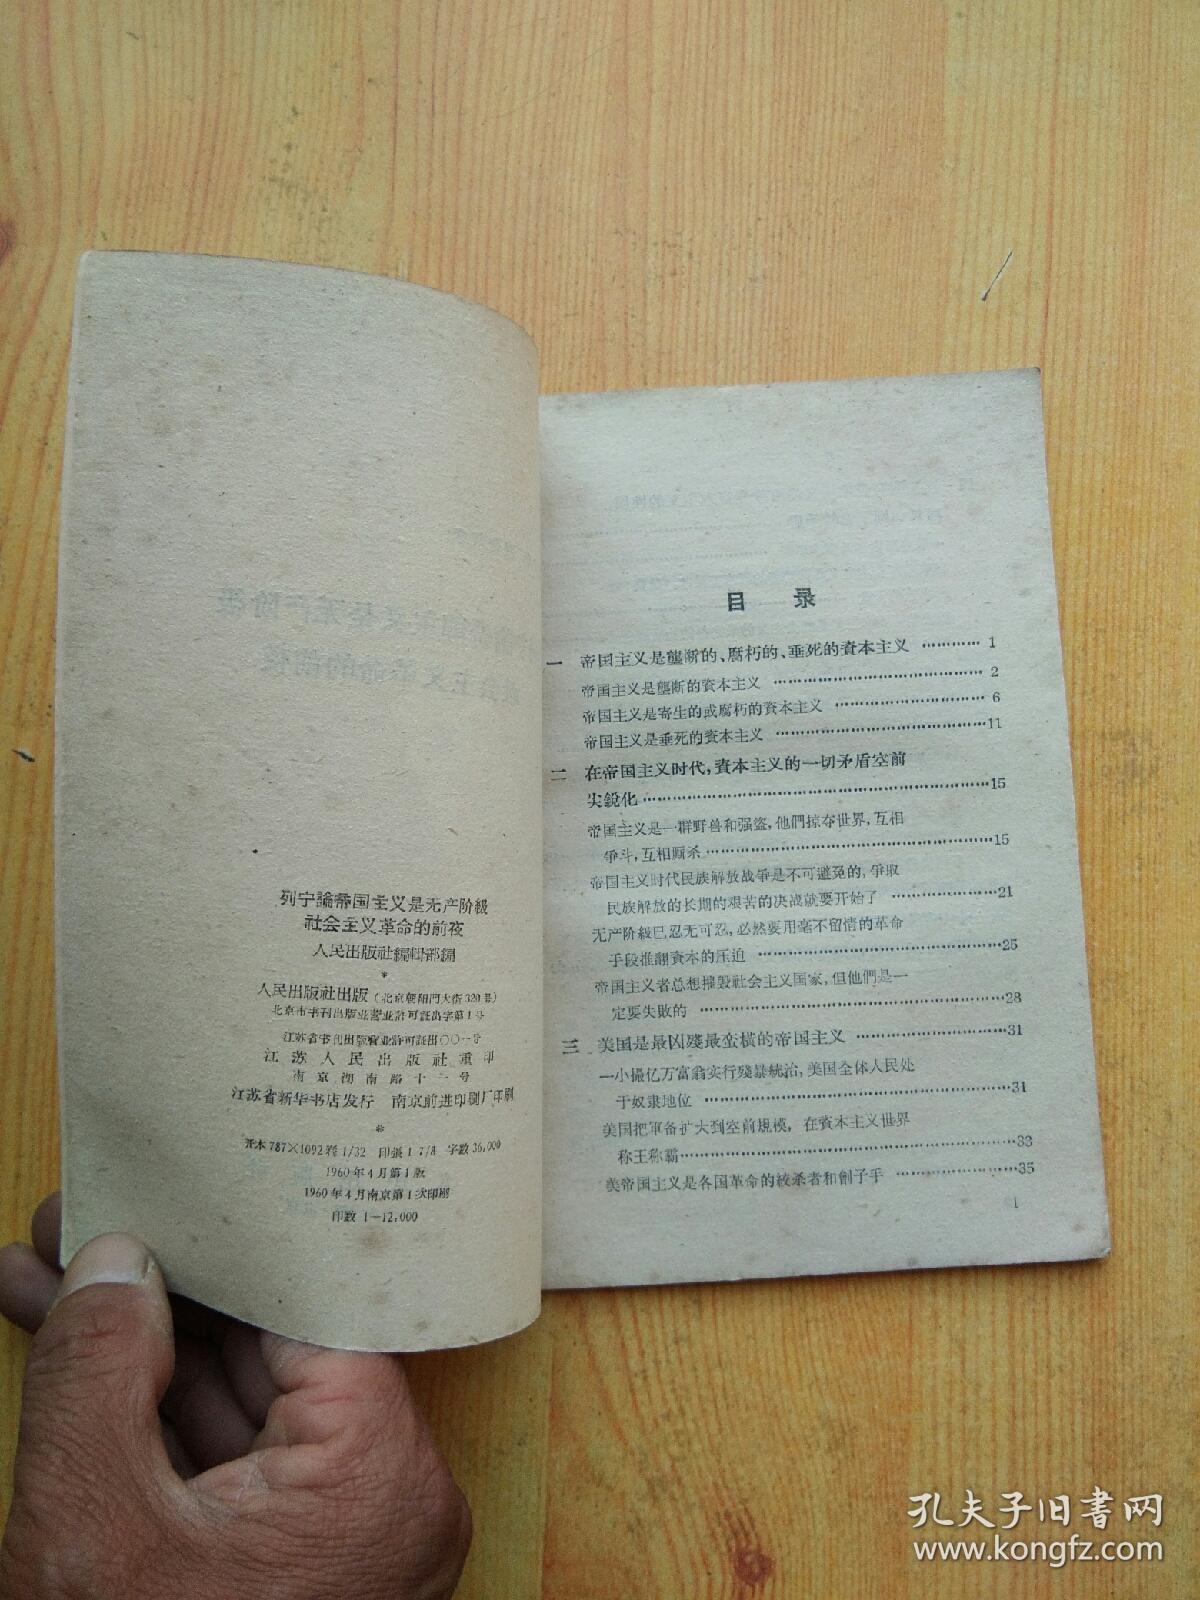 列宁論帝国主义是无产阶級
社会主义革命的前夜
人民出版社編輯部編
*
人民出版社出版（北京朝阳門大街320号）
北京市书刊出版业营业許可証出字第1号
江苏省书刊出版营业許可証出〇〇一号
江苏人民出版社重印
南京湖南路十一号
江苏省新华书店发行 南京前进印刷厂印刷
*
开本787×1092 1/32 印張1 7/8 字数36,000
1960年4月第1版
1960年4月南京第1次印刷
印数1—12,000
目 录
一 帝国主义是壟断的、腐朽的、垂死的資本主义 …………1
帝国主义是壟断的資本主义 …………2
帝国主义是寄生的或腐朽的資本主义 …………6
帝国主义是垂死的資本主义 …………11
二 在帝国主义时代，資本主义的一切矛盾空前
尖銳化…………15
帝国主义是一群野兽和强盜，他們掠夺世界，互相
爭斗，互相厮杀…………15
帝国主义时代民族解放战爭是不可避免的，爭取
民族解放的长期的艰苦的决战就要开始了 …………21
无产阶級已忍无可忍，必然要用毫不留情的革命
手段推翻資本的压迫 …………25
帝国主义者总想摧毁社会主义国家，但他們是一
定要失敗的 …………28
三 美国是最凶殘最蛮橫的帝国主义 …………31
一小撮亿万富翁实行殘暴統治，美国全体人民处
于奴隶地位 …………31
美国把軍备扩大到空前規模，在資本主义世界
称王称霸…………33
美帝国主义是各国革命的絞杀者和劊子手 …………35
1
孔夫子旧书网
www.kongfz.com